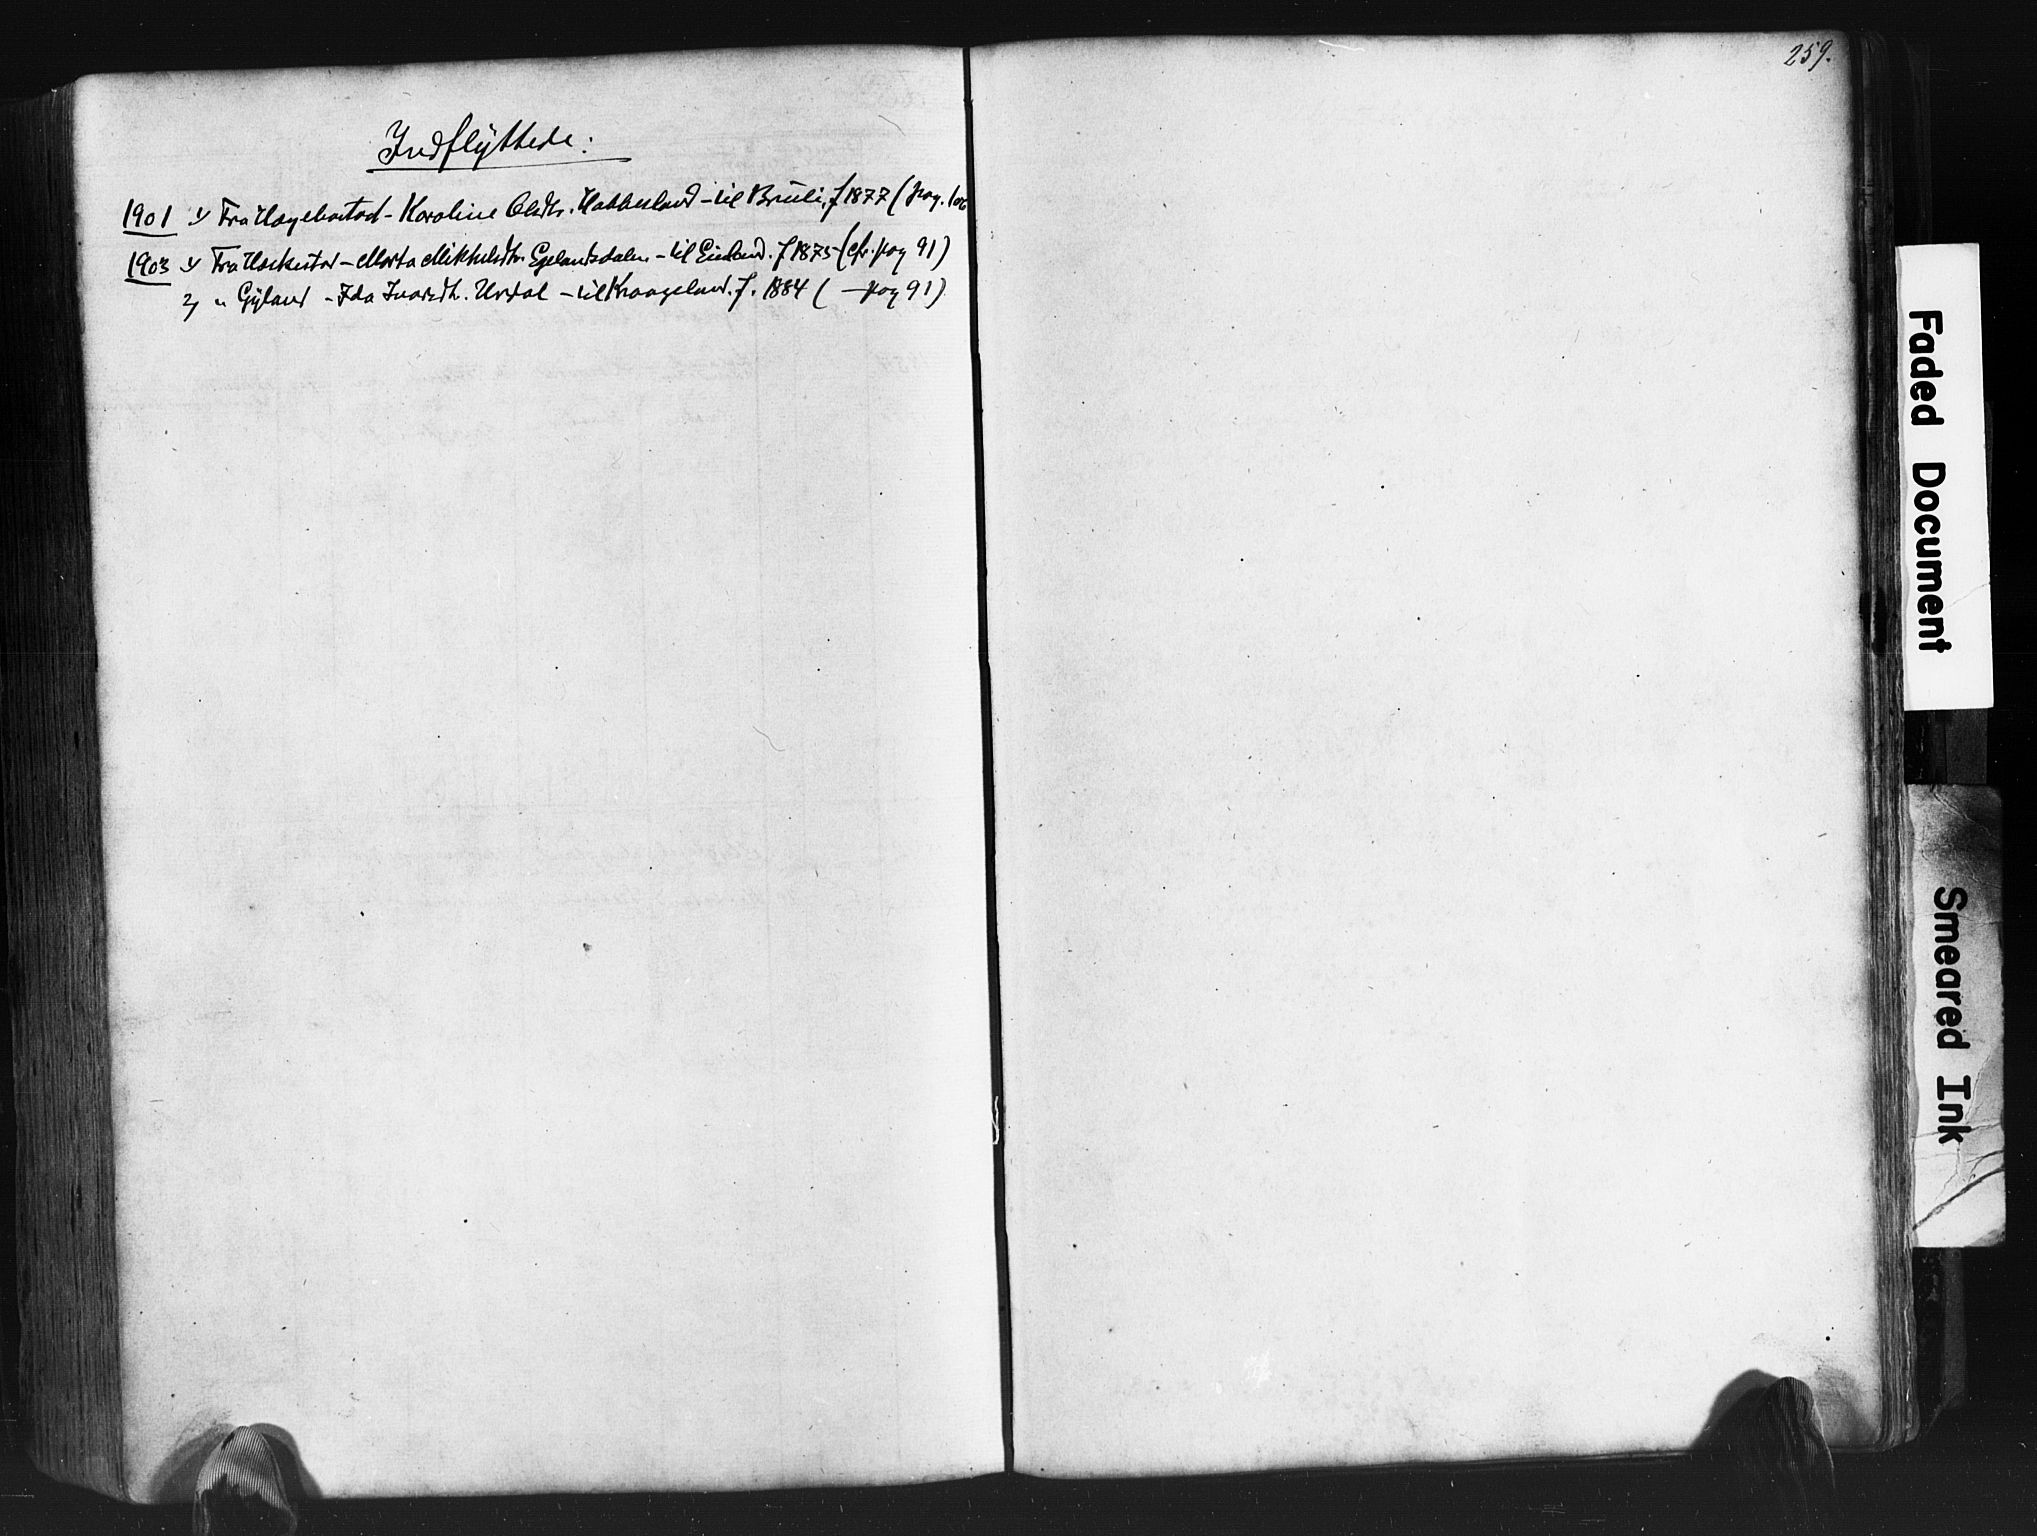 259.
Indflÿttede:
1901 1) Fra Hægebostad - Karoline Olsdtr. Haddeland - til Brüli, f 1877 (pag. 100
1903 1) Fra - Marta Mikkelsdtr. Egelandsdalen - til Eieland. f 1875 (cfr. pag 91)
2) " Gÿland - Ida Ivarsdtr. Urdal - til Kraageland. f. 1884 ( — pag 91)
Faded Document
Smeared Ink